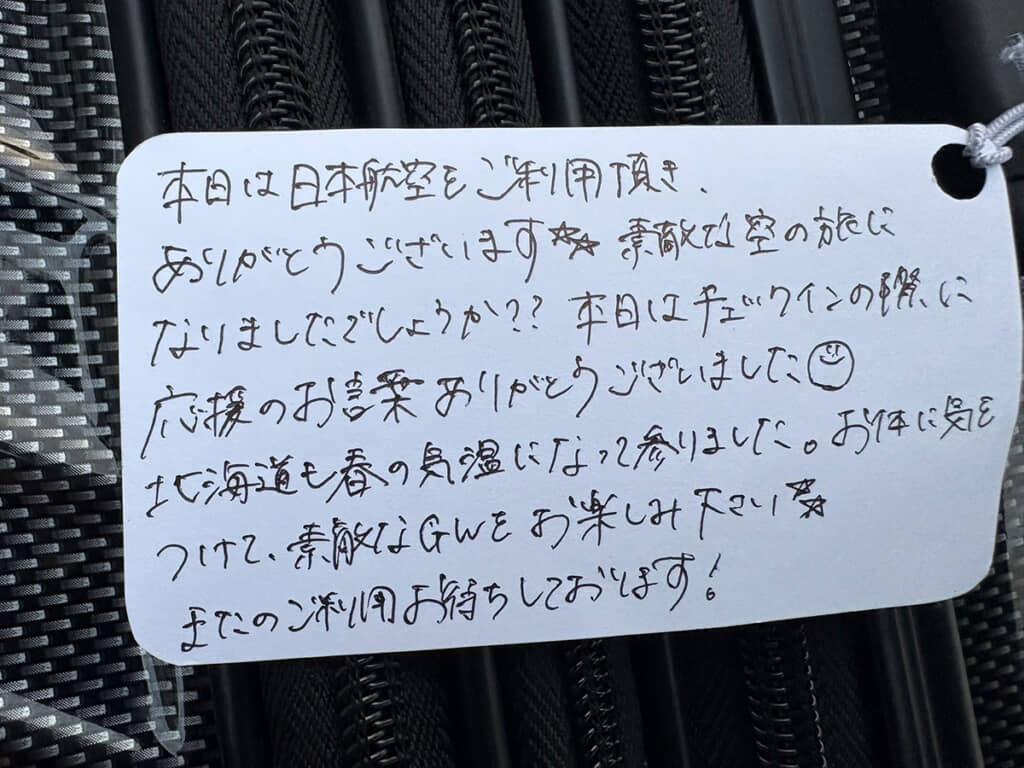 本日は日本航空をご利用頂き、
ありがとうございます☆☆ 素敵な空の旅に
なりましたでしょうか?? 本日はチェックインの際に
応援のお言葉ありがとうございました☺
北海道も春の気温になって参りました。お体に気を
つけて、素敵なGWをお楽しみ下さい☆☆
またのご利用お待ちしております!